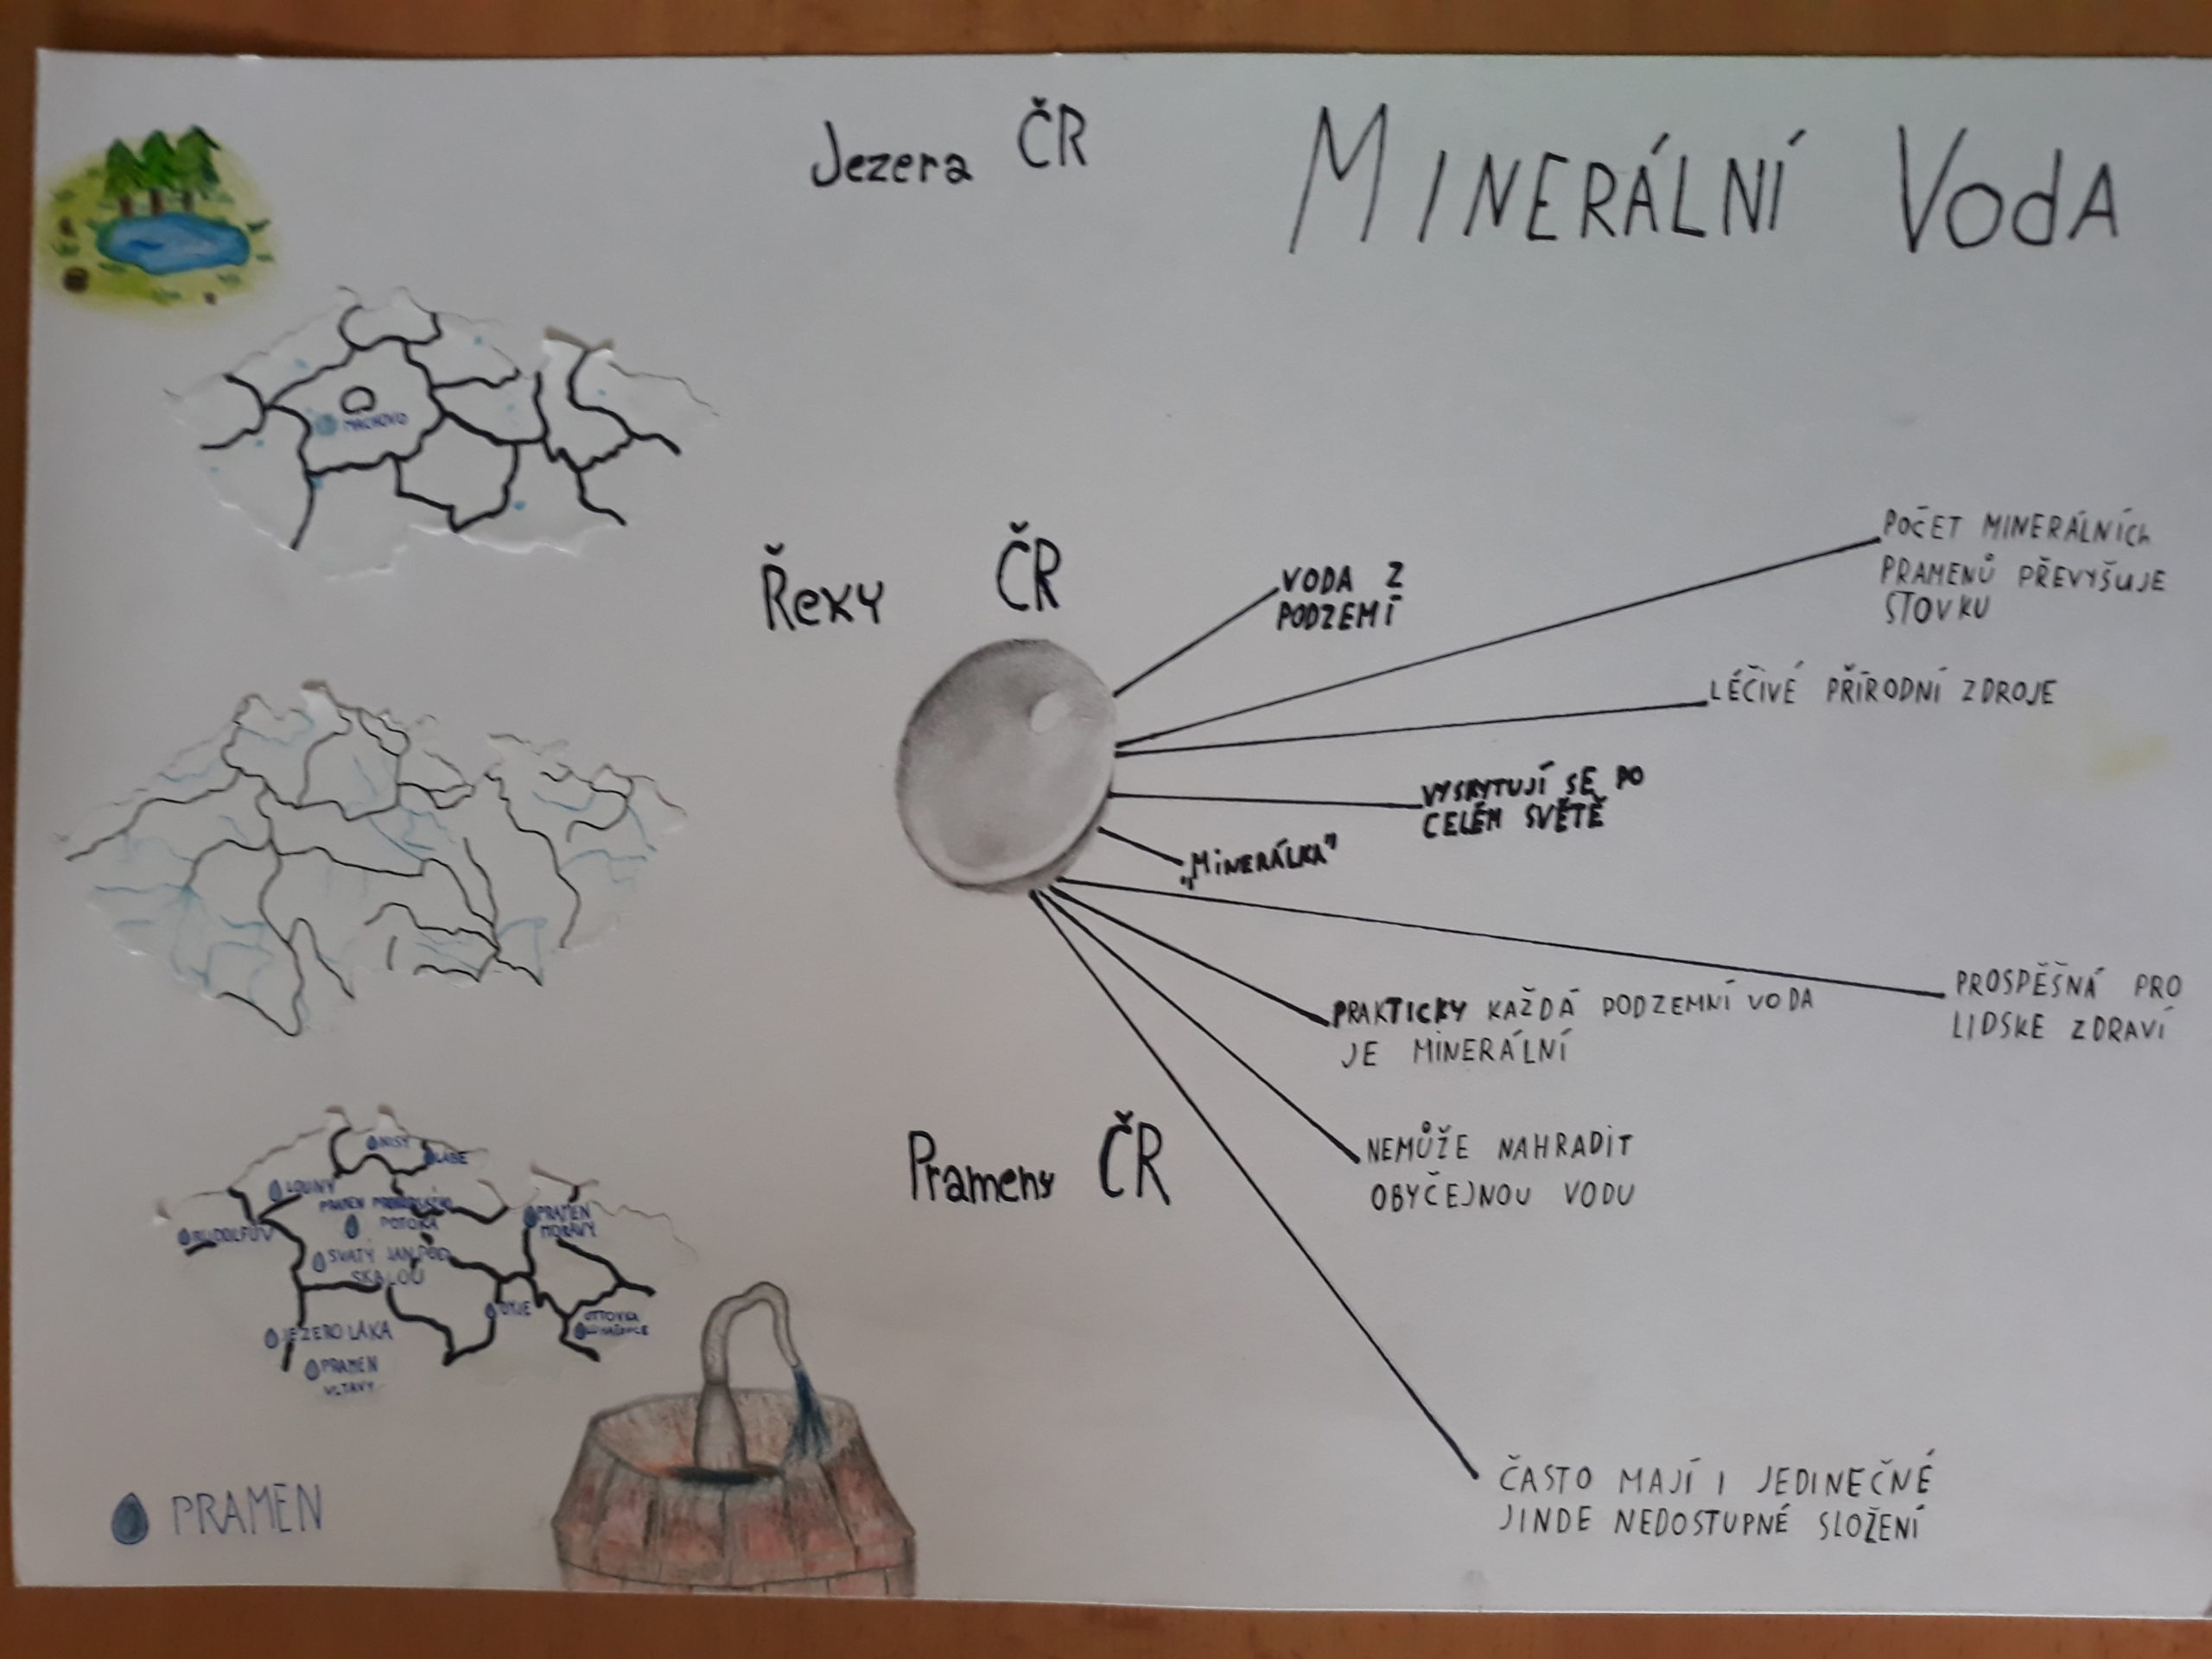 Jezera ČR
MINERÁLNÍ VodA
MACHOVO
Řeky ČR
VODA Z
PODZEMÍ
POČET MINERÁLNÍCh
PRAMENŮ PŘEVYŠUJE
STOVKU
LÉČIVÉ PŘÍRODNÍ ZDROJE
VYSKYTUJÍ SE PO
CELÉM SVĚTĚ
„MiNERÁLKA"
PROSPĚŠNÁ PRO
LIDSKE ZDRAVÍ
PRAKTICKY KAŽDÁ PODZEMNÍ VODA
JE MINERÁLNÍ
NEMŮŽE NAHRADIT
OBYČEJNOU VODU
ČASTO MAJÍ I JEDINEČNÉ
JINDE NEDOSTUPNÉ SLOŽENÍ
Prameny ČR
NISY
LABE
LOUNY
PRAMEN
POTOKA
PRAMEN
MORAVY
RUDOLFŮV
SVATÝ JAN POD
SKALOU
DYJE
OTTOVKA
JEZERO LÁKA
PRAMEN
VLTAVY
PRAMEN